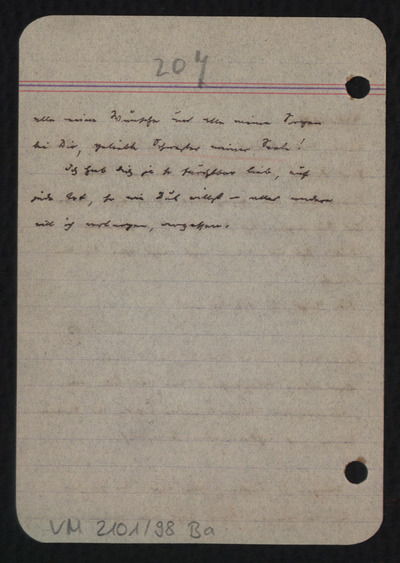 204
alle meine Wünsche und alle meine Sorgen
bei Dir, geliebte Schwester meiner Seele!
Ich hab Dich ja so furchtbar lieb, auf
jede Art, so wie Du willst – alles andere
will ich verborgen, vergessen.
VM 2101/98 Ba